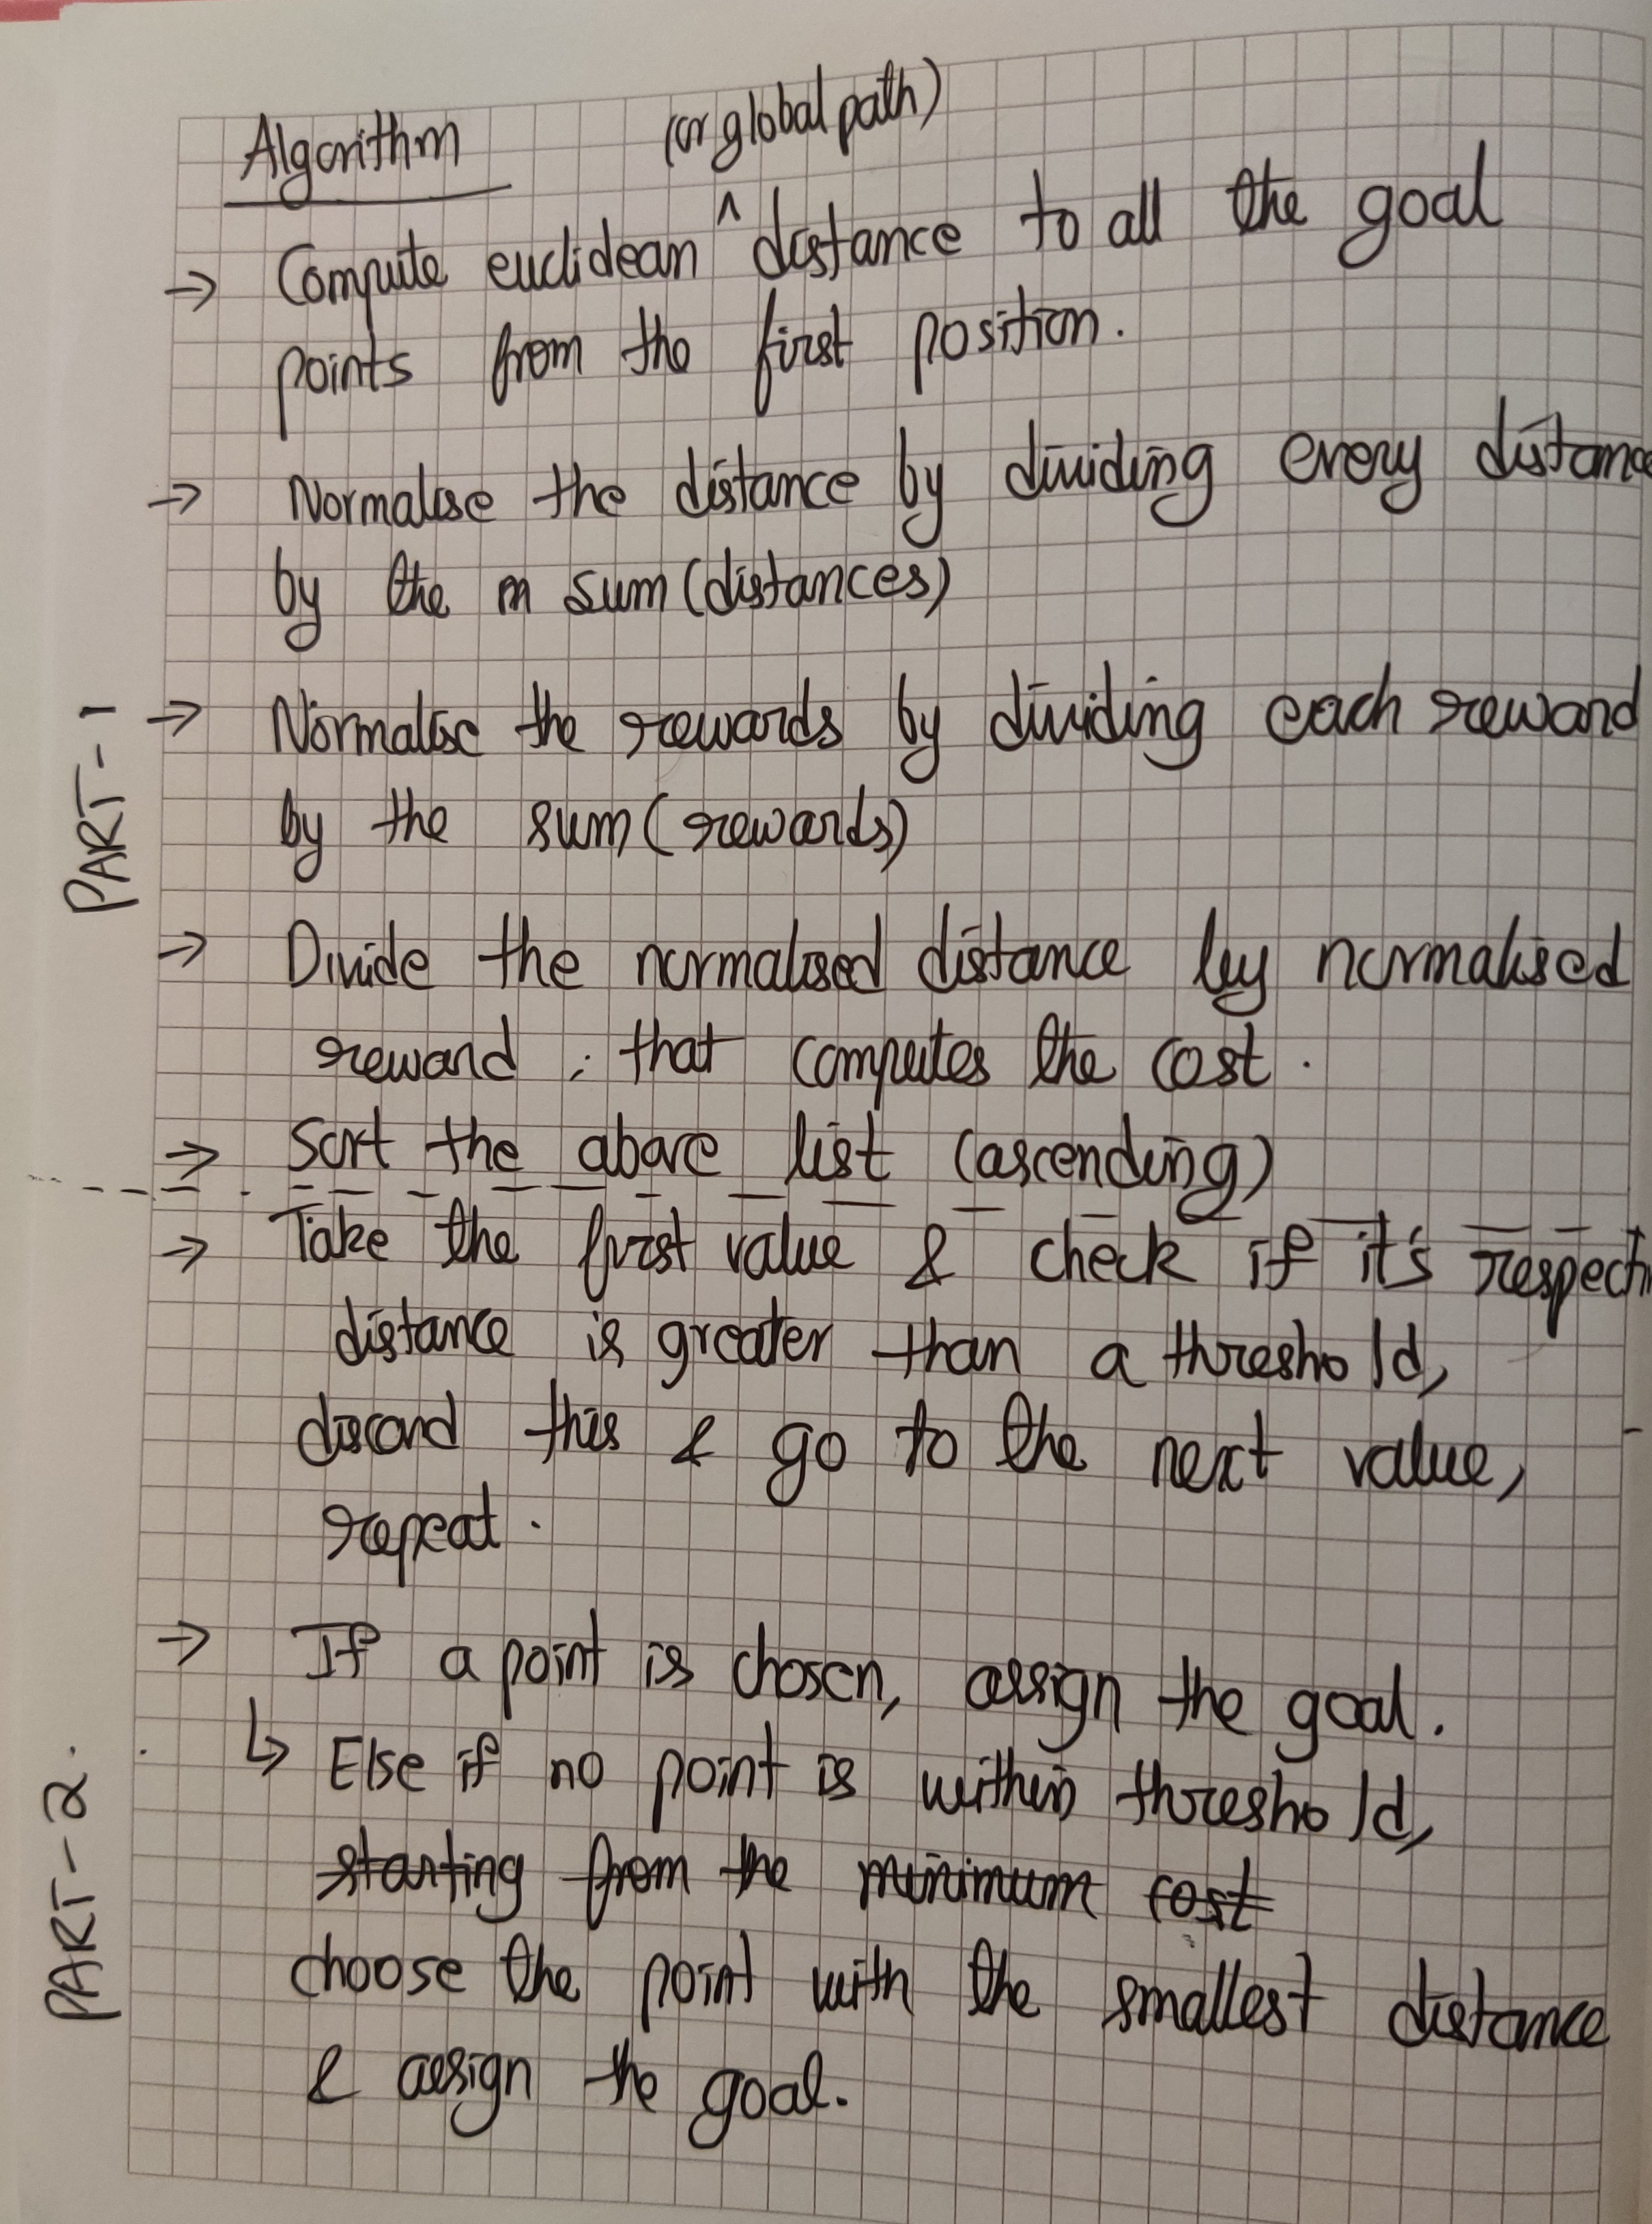 Algorithm (or global path)
→ Compute euclidean ^ distance to all the goal
points from the first position.
→ Normalise the distance by dividing every distance
by the m sum (distances)
→ Normalise the rewards by dividing each reward
by the sum (rewards)
PART-1
→ Divide the normalised distance by normalised
reward ; that computes the cost.
→ Sort the above list (ascending)
→ Take the first value & check if it's respecti
distance is greater than a threshold,
discard this & go to the next value,
repeat.
→ If a point is chosen, assign the goal.
↳ Else if no point is within threshold,
starting from the minimum cost
choose the point with the smallest distance
& assign the goal.
PART-2.